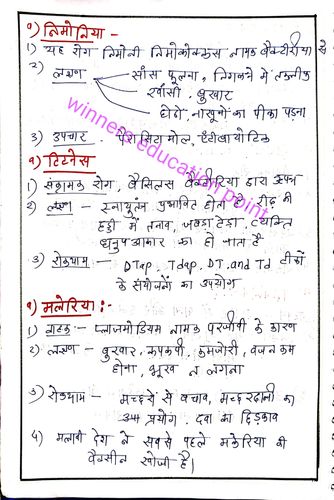 १) निमोनिया -
1) यह रोग निमोनी निमोकोकस नामक बैक्टीरिया से
2) लक्षण - साँस फूलना, निगलने में तकलीफ
खाँसी, बुखार
होठों नाखूनों का पीका पड़ना
3) उपचार - पैरासिटामोल, एंटीबायोटिक
१) टिटनेस
1) संक्रामक रोग, बैसिलस बैक्टीरिया द्वारा उत्पन्न
2) लक्षण - स्नायुतंत्र प्रभावित होता है, रीढ़ की
हड्डी में तनाव, जबड़ा टेढ़ा, व्यक्ति
धनुषआकार का हो जाता है
3) रोकथाम - DTap, Tdap, DT, and Td टीकों
के संयोजनों का उपयोग
१) मलेरिया :-
1) वाहक - प्लाज्मोडियम नामक परजीवी के कारण
2) लक्षण - बुखार, कपकपी, कमजोरी, वजन कम
होना, भूख न लगना
3) रोकथाम - मच्छरों से बचाव, मच्छरदानी का
उपयोग, दवा का छिड़काव
4) मलावी देश ने सबसे पहले मलेरिया की
वैक्सीन खोजी है।
winners education point